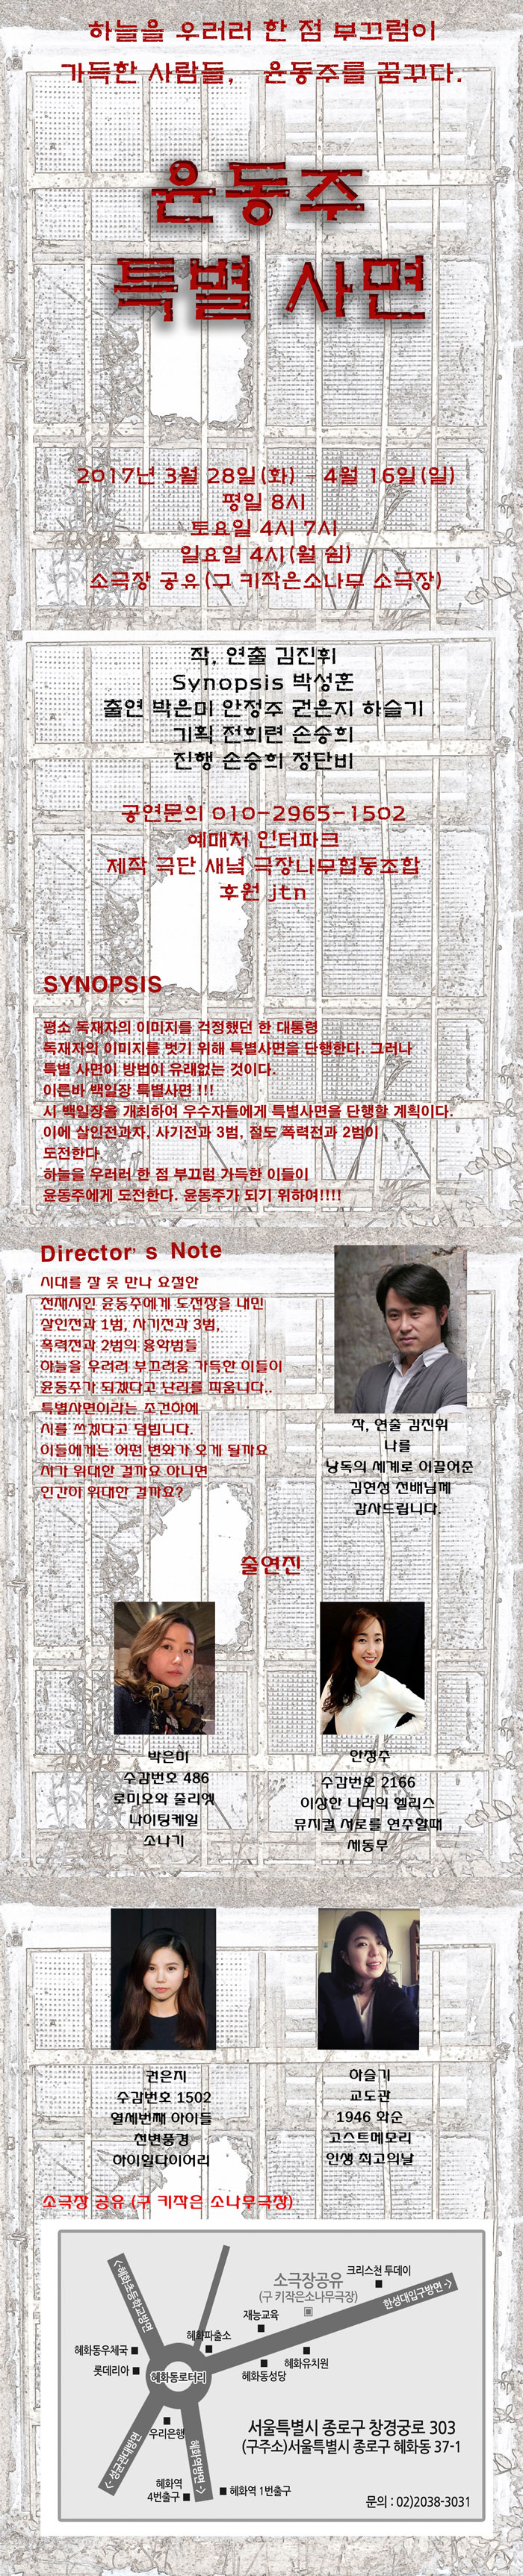 하늘을 우러러 한 점 부끄럼이
가득한 사람들, 윤동주를 꿈꾸다.
윤동주
특별 사면
2017년 3월 28일(화) - 4월 16일(일)
평일 8시
토요일 4시 7시
일요일 4시(월 쉼)
소극장 공유(구 키작은소나무 소극장)
작, 연출 김진휘
Synopsis 박성훈
출연 박은미 안정주 권은지 하슬기
기획 전희련 손승희
진행 손승희 정단비
공연문의 010-2965-1502
예매처 인터파크
제작 극단 새녘 극장나무협동조합
후원 jtn
SYNOPSIS
평소 독재자의 이미지를 걱정했던 한 대통령
독재자의 이미지를 벗기 위해 특별사면을 단행한다. 그러나
특별 사면이 방법이 유래없는 것이다.
이른바 백일장 특별사면 !!!
시 백일장을 개최하여 우수자들에게 특별사면을 단행할 계획이다.
이에 살인전과자, 사기전과 3범, 절도 폭력전과 2범이
도전한다
하늘을 우러러 한 점 부끄럼 가득한 이들이
윤동주에게 도전한다. 윤동주가 되기 위하여!!!!
Director's Note
시대를 잘 못 만나 요절한
천재시인 윤동주에게 도전장을 내민
살인전과 1범, 사기전과 3범,
폭력전과 2범의 흉악범들
하늘을 우러러 부끄러움 가득한 이들이
윤동주가 되겠다고 난리를 피웁니다..
특별사면이라는 조건하에
시를 쓰겠다고 덤빕니다.
이들에게는 어떤 변화가 오게 될까요
시가 위대한 걸까요 아니면
인간이 위대한 걸까요?
작, 연출 김진휘
나를
낭독의 세계로 이끌어준
김현성 선배님께
감사드립니다.
출연진
박은미
수감번호 486
로미오와 줄리엣
나이팅케일
소나기
안정주
수감번호 2166
이상한 나라의 엘리스
뮤지컬 서로를 연주할때
세동무
권은지
수감번호 1502
열세번째 아이들
천변풍경
아이일다이어리
하슬기
교도관
1946 화순
고스트메모리
인생 최고의날
소극장 공유 (구 키작은 소나무극장)
<-혜화초등학교방면
소극장공유
(구 키작은소나무극장)
크리스천 투데이
한성대입구방면 ->
재능교육
혜화파출소
혜화동우체국
롯데리아
혜화동로터리
혜화유치원
혜화동성당
우리은행
<- 성균관대방면
혜화역방면 ->
서울특별시 종로구 창경궁로 303
(구주소)서울특별시 종로구 혜화동 37-1
혜화역
4번출구
혜화역 1번출구
문의 : 02)2038-3031